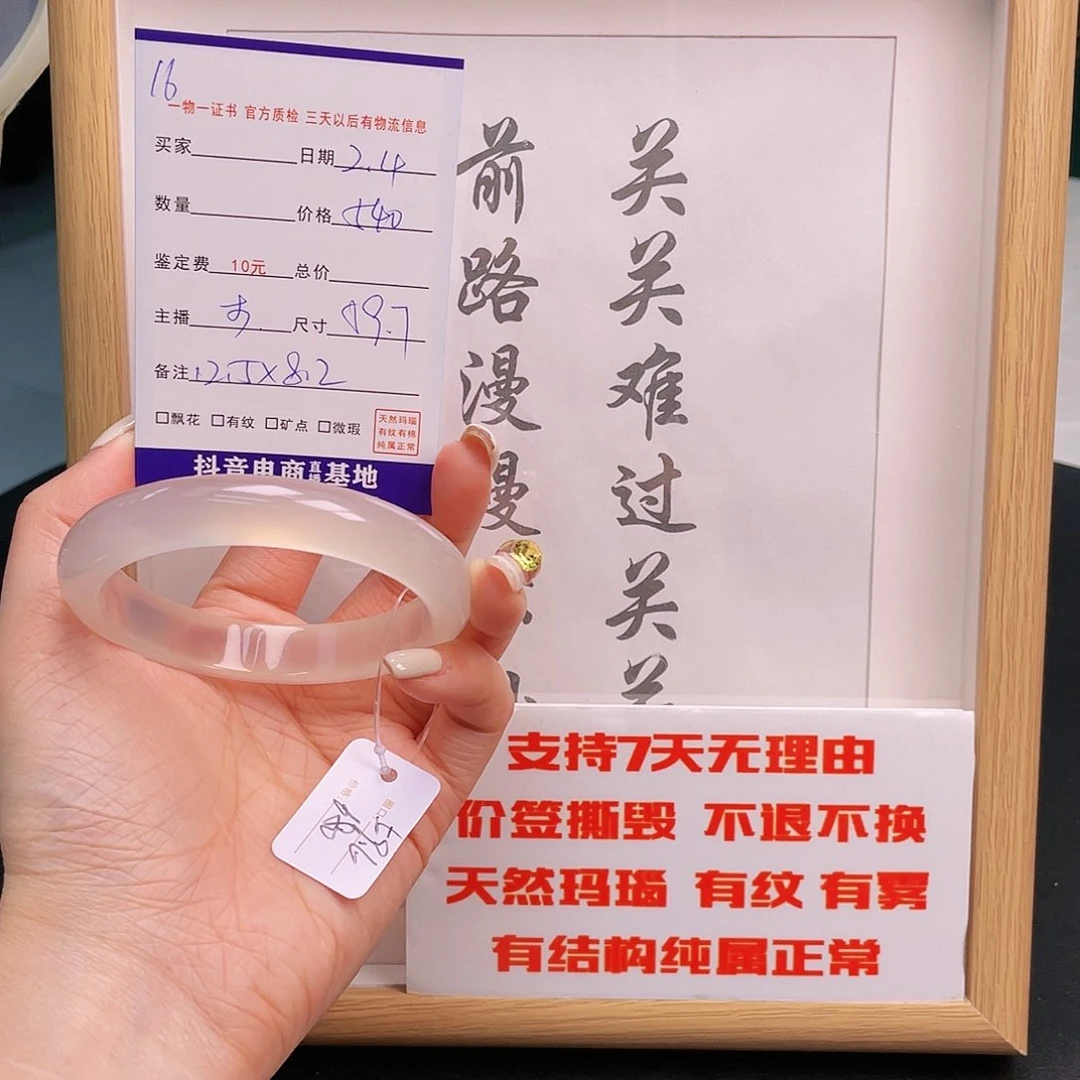 16
一物一证书 官方质检 三天以后有物流信息
买家 日期 2.4
数量 价格 540
鉴定费 10元 总价
主播 尺寸 59.7
备注 12.5×8.2
□飘花 □有纹 □矿点 □微瑕
天然玛瑙
有纹有棉
纯属正常
抖音电商直播基地
关关难过关关
前路漫漫
圈口 59.7
支持7天无理由
价签撕毁 不退不换
天然玛瑙 有纹 有雾
有结构纯属正常